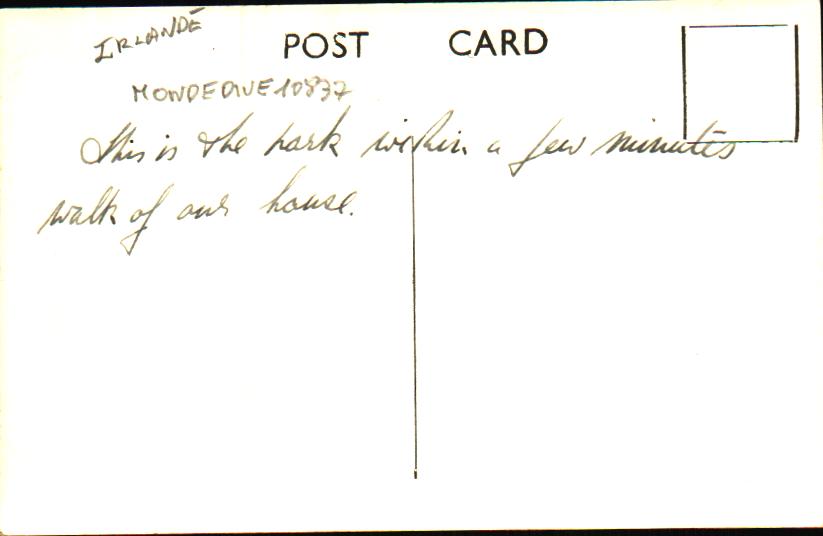 IRLANDE
POST CARD
MONDEDIVE10837
This is the park within a few minutes
walk of our house.